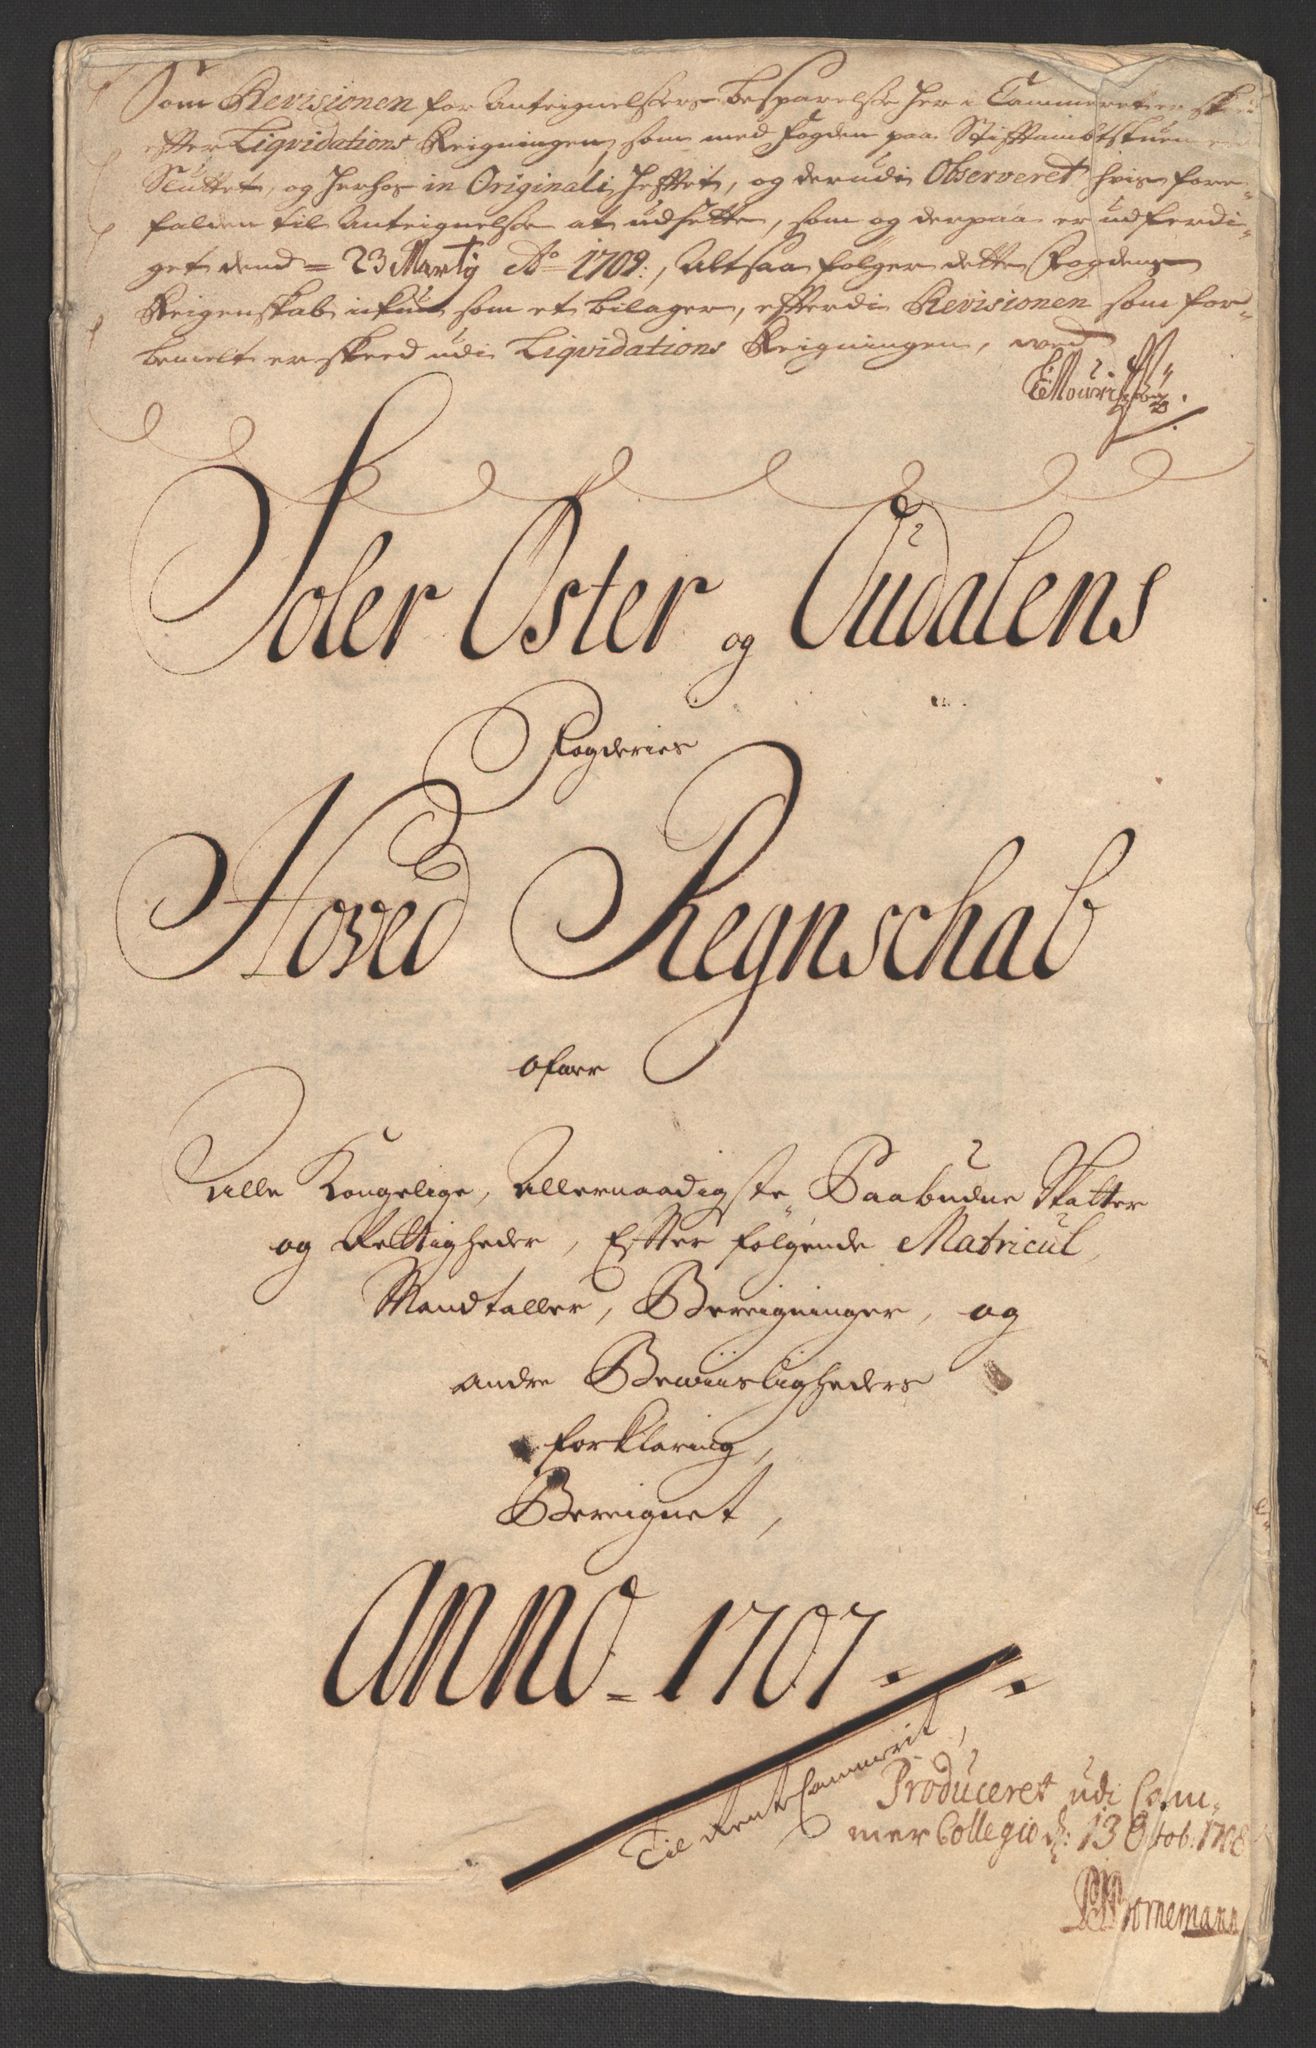 Som Revisionen for Anteignelsers besparelse her i Cammeret er skeed
effter Liqvidations Reigningen, som med fogden paa Stifftambtstuen er
Sluttet, og herhos in Originali hefftet, og derudi Observeret hvis fore-
falden til Anteignelse at udsette, som og derpaa er udferdi-
get dend 23 Martij Ao 1709:, Altsaa følger dette Fogdens
Reigenskab ickun som et bilager, efferdi Revisionen som for-
bemelt er skeed udi Liqvidations Reigningen, ved
Soler Oster og Oudalens
Fogderies
Hoved Regnschab
ofver
Alle Kongelige, Allernaadigste Paabudne Skatter
og Rettigheder, Effter følgende Matricul,
Mandtaller, Bereigninger, og
andre Bewiisligheders
forklaring,
Bereignet,
Anno 1707.
Til Rente Cammerit,
Produceret udi Cam-
mer Collegio d: 13 Octob: 1708
Bornemann